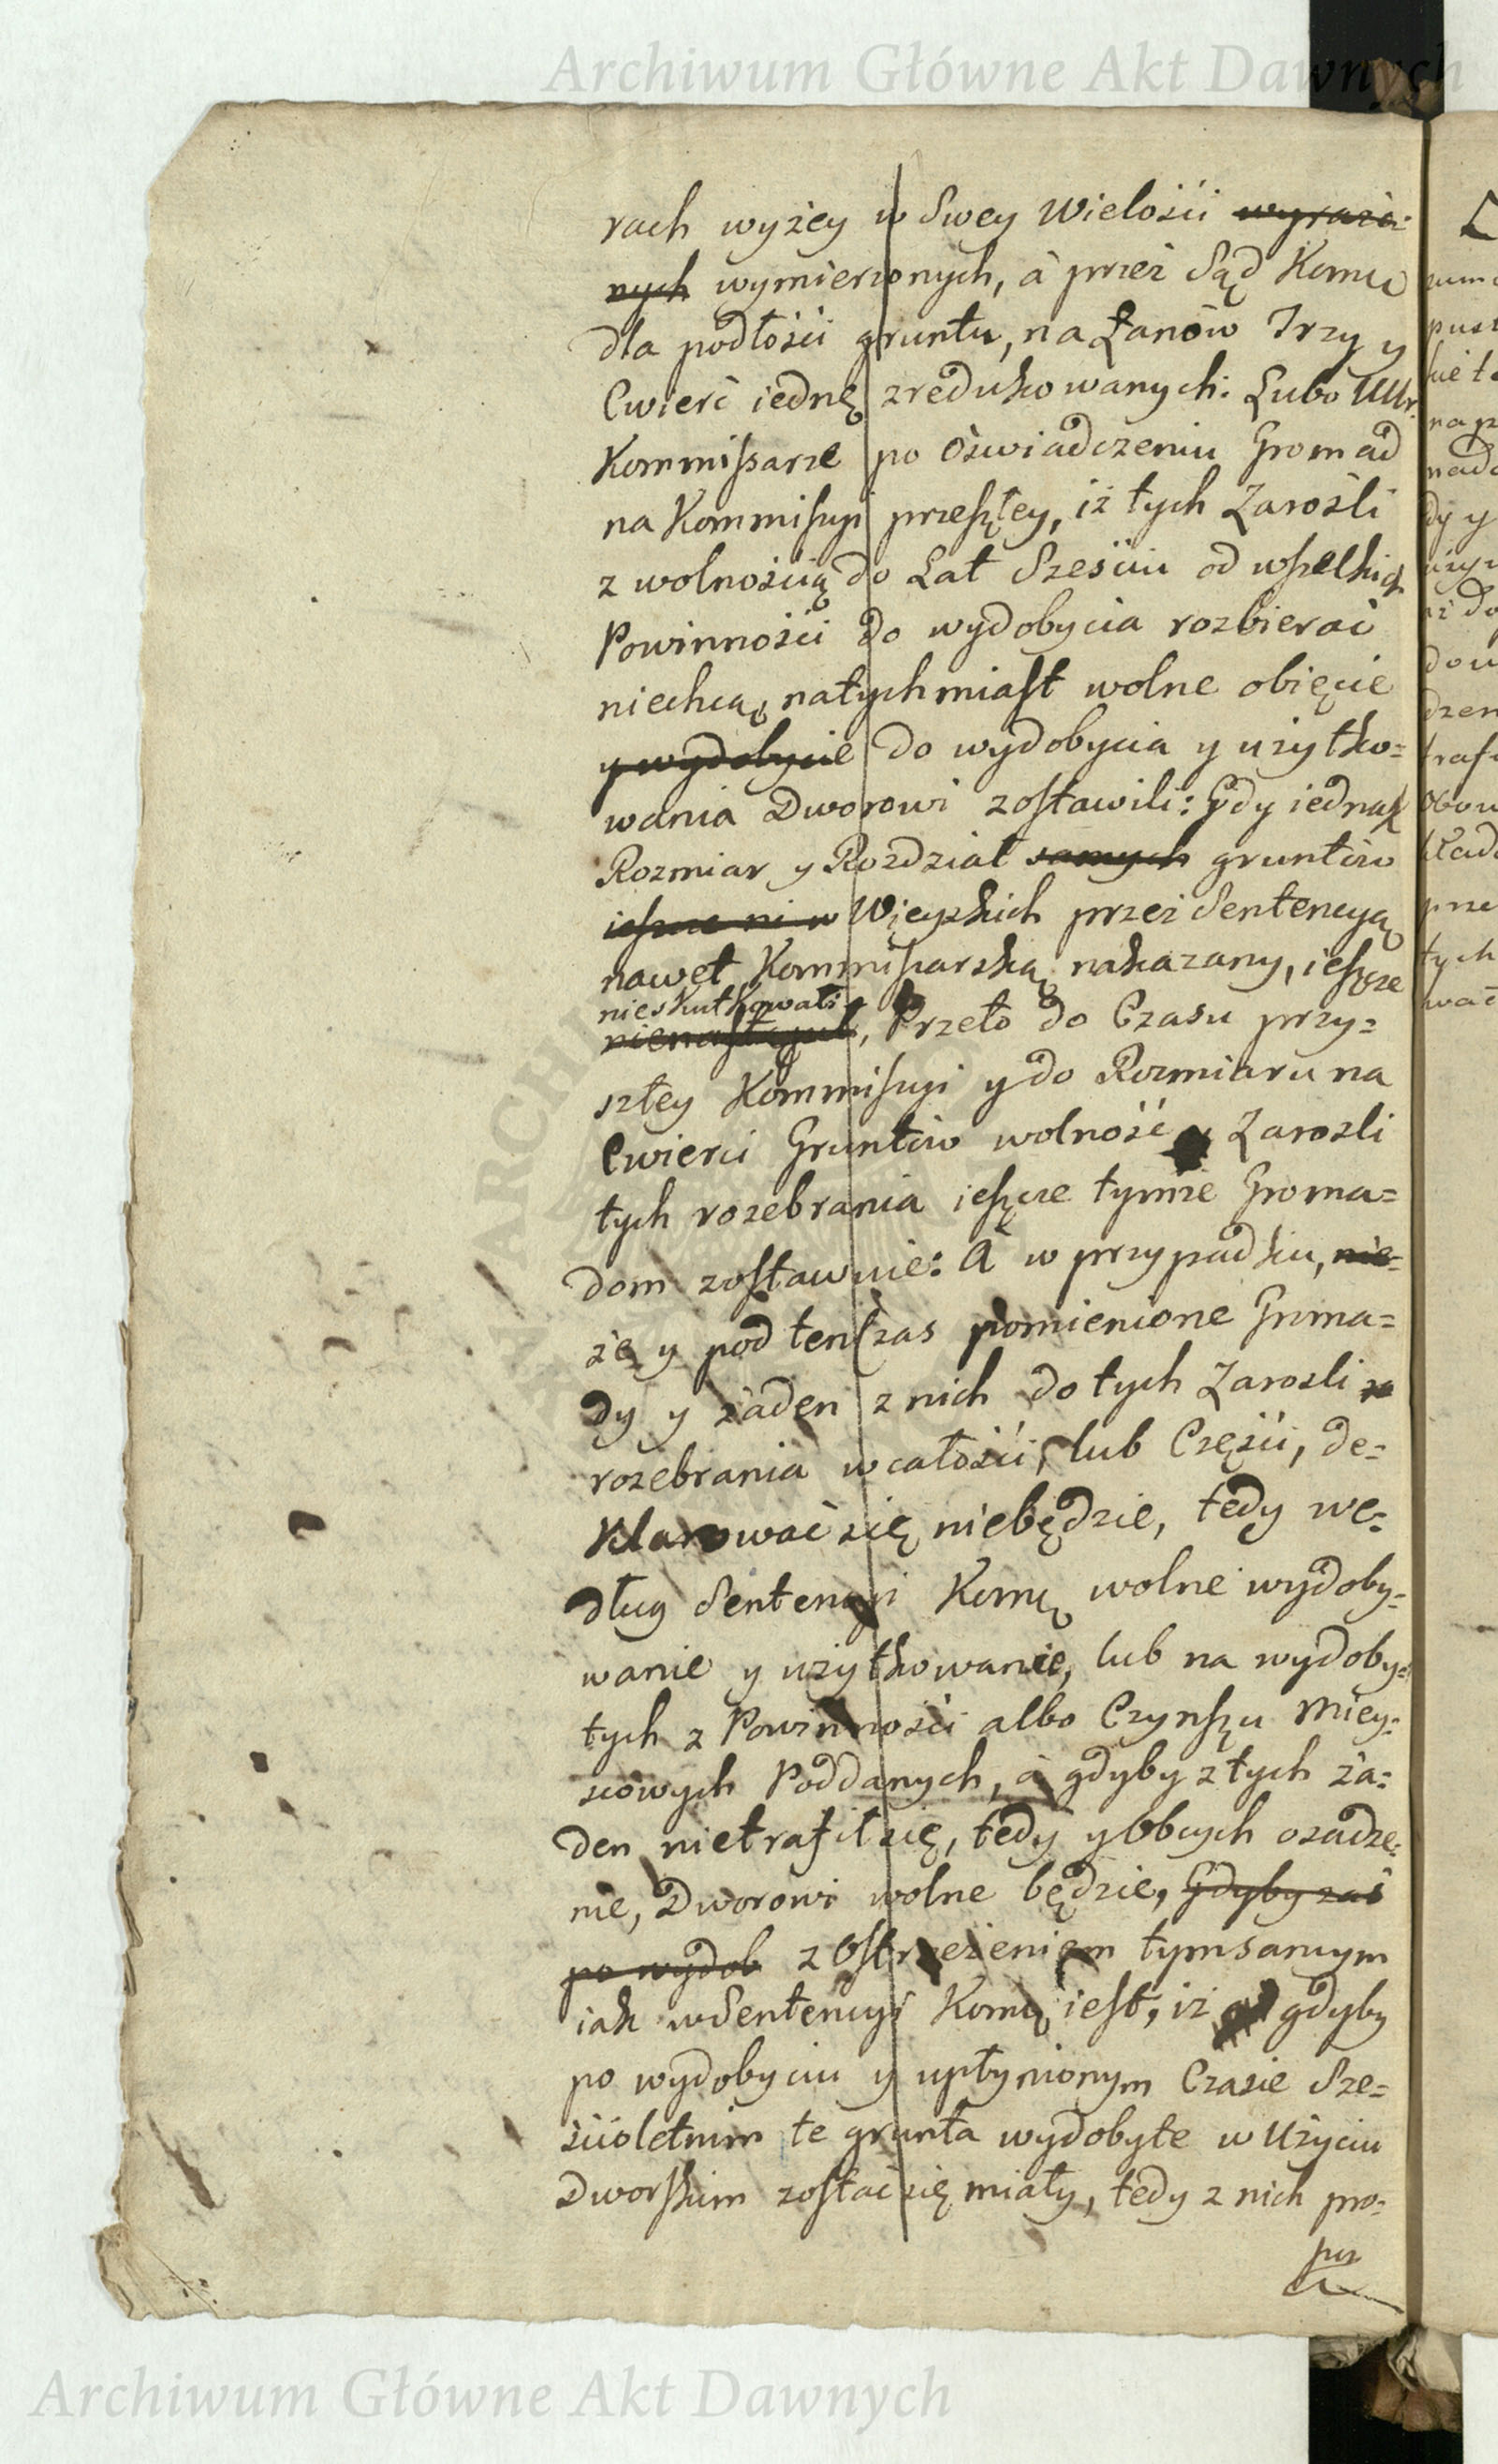 Archiwum Główne Akt Dawnych
rach wyżey w Swey Wielości wyrażo-
nych wymierzonych, à przez Sąd Komu
dla podłości gruntu, na Łanów Trzy y
Cwierć iednę zredukowanych: Lubo UUr.
Kommissarze po Oświadczeniu Gromad
na Kommissyi przeszłey, iż tych Zarośli
z wolnością do Lat Sześciu od wszelkich
Powinności do wydobycia rozbierać
niechcą, natychmiast wolne obięcie
y wydobycie do wydobycia y użytko=
wania Dworowi zostawili: Gdy iednak
Rozmiar y Rozdział samych gruntów
ieszcze ni w Wieyskich przez Sentencyą
nawet Kommissarską nakazany, ieszcze
nieskutkował:
nienastąpił, Przeto do Czasu przy=
szłey Kommissyi y do Rozmiaru na
Cwierci Gruntów wolność Zarośli
tych rozebrania ieszcze tymże Groma=
dom zostawuie: A w przypadku, nie-
że y pod ten Czas pomienione Groma=
dy y żaden z nich do tych Zarośli
rozebrania w całości, lub Części, de=
klarować się niebędzie, tedy we=
dług Sentencyi Komu wolne wydoby=
wanie y użytkowanie, lub na wydoby=
tych z Powinności albo Czynszu Miey=
scowych Poddanych, à gdyby z tych ża=
den nietrafił się, tedy y Obcych osadze=
nie, Dworowi wolne będzie, Gdyby zaś
po wydob z Ostrzeżeniem tymsamym
iak w Sentencyi Komu iest, iż gdyby
po wydobyciu y upłynionym Czasie Sze=
ścioletnim te grunta wydobyte w Użyciu
Dworskim zostać się miały, tedy z nich pro=
Archiwum Główne Akt Dawnych